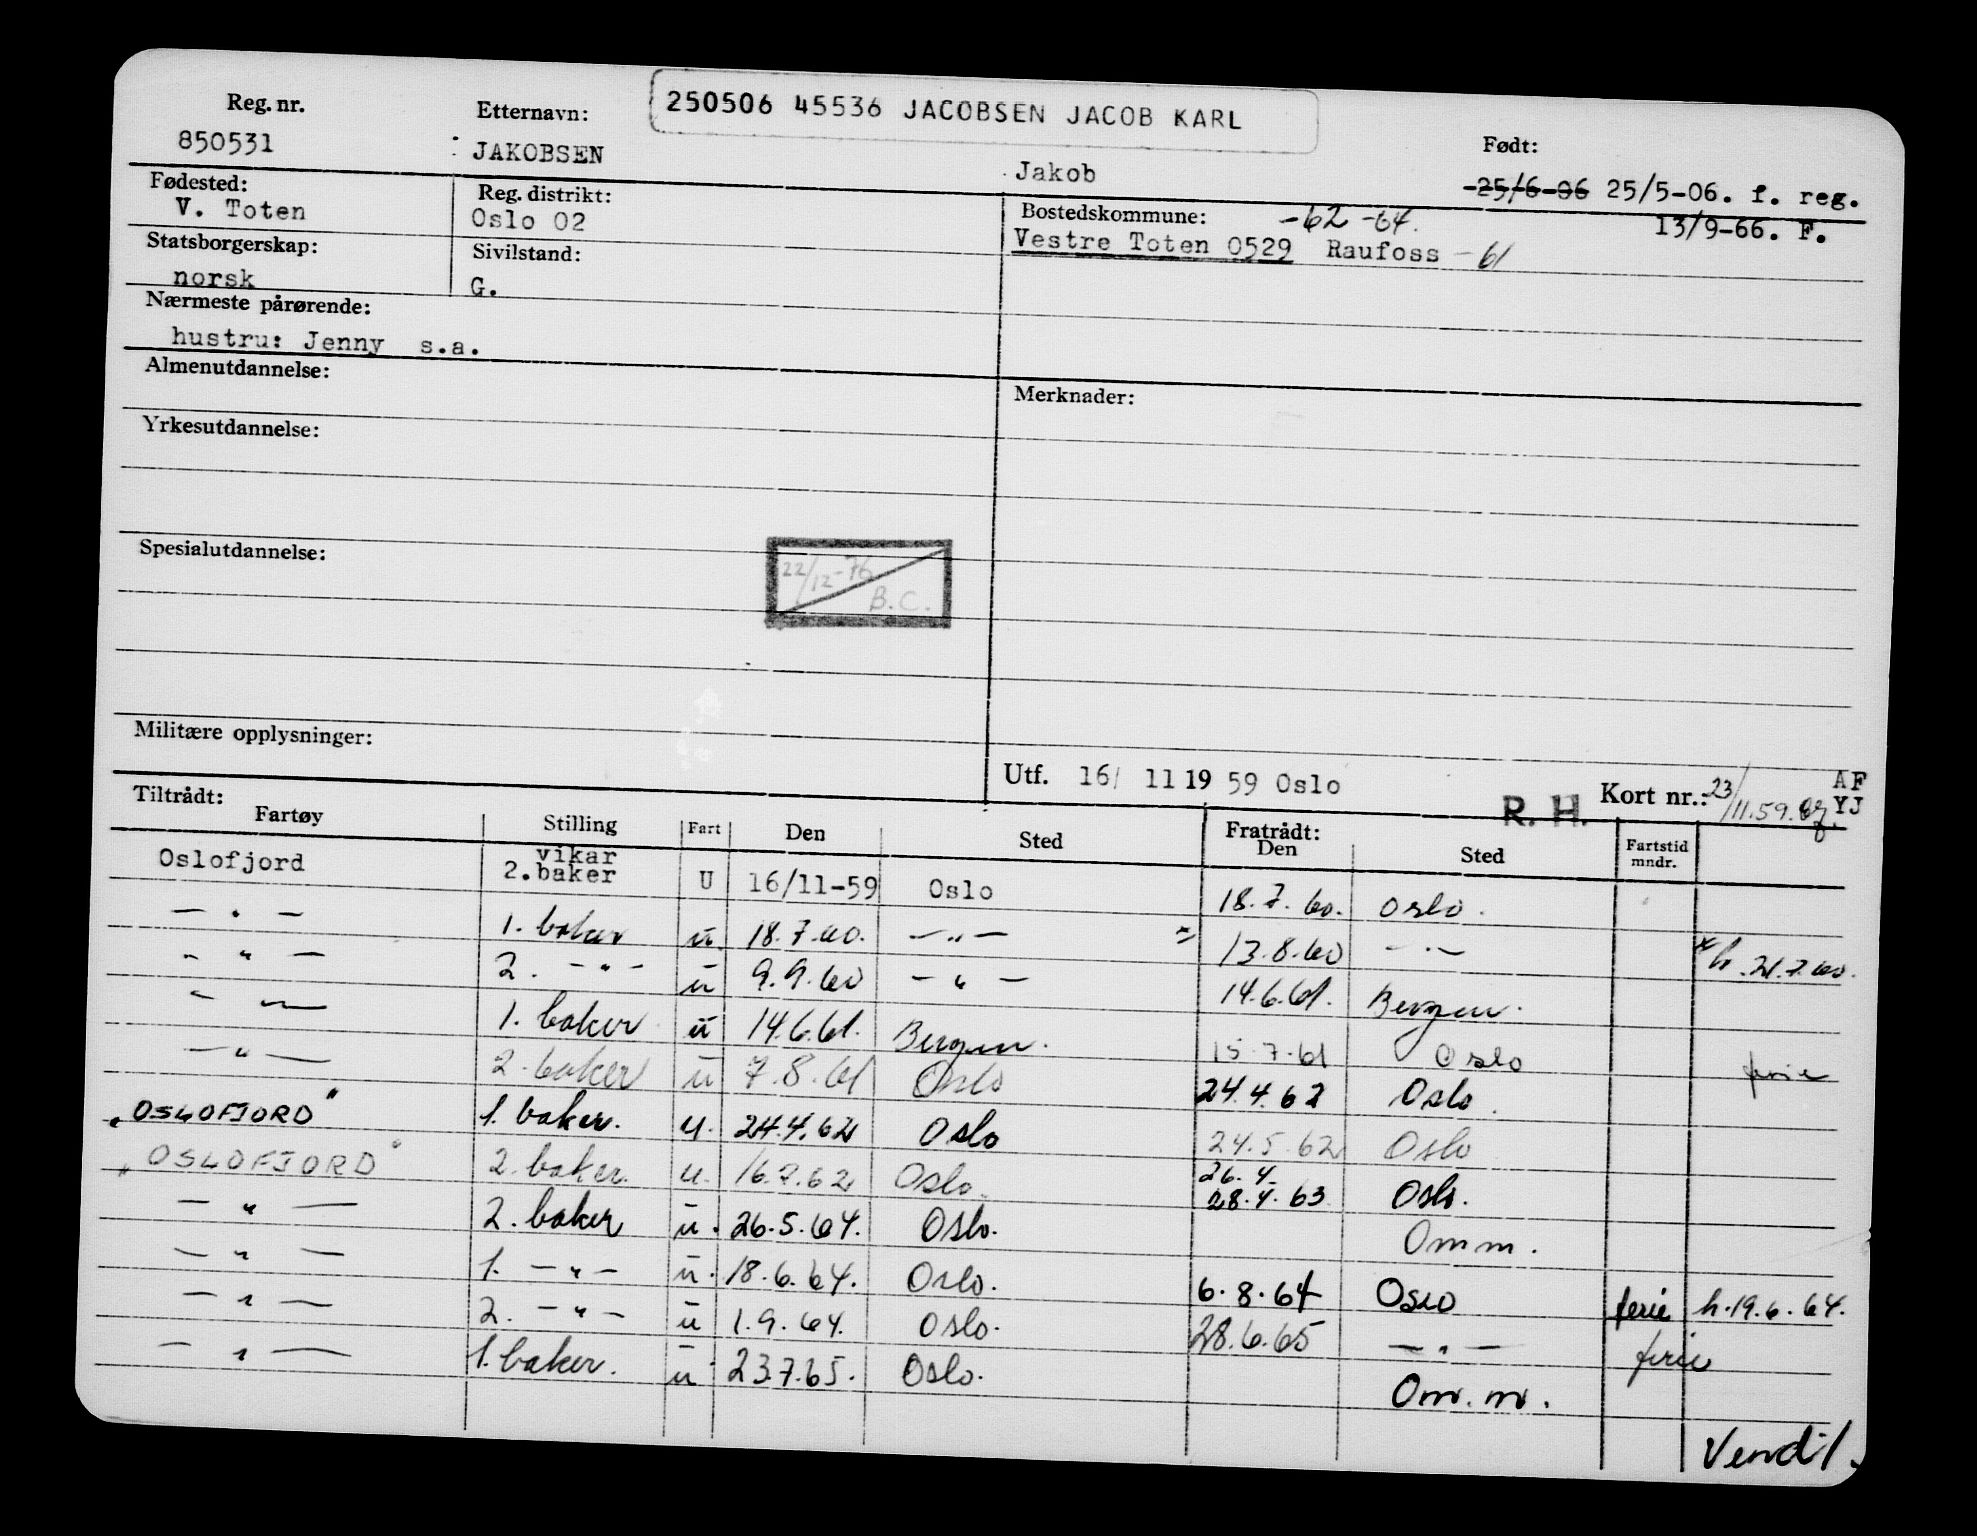 250506 45536 JACOBSEN JACOB KARL
Reg. nr. Etternavn: Født:
850531 JAKOBSEN Jakob -25/6-06 25/5-06. f. reg.
13/9-66. F.
Fødested: Reg. distrikt: Bostedskommune: -62 -64.
V. Toten Oslo 02 Vestre Toten 0529 Raufoss -61
Statsborgerskap: Sivilstand:
norsk G.
Nærmeste pårørende:
hustru: Jenny s.a.
Almenutdannelse: Merknader:
Yrkesutdannelse:
Spesialutdannelse:
22/12-76
B.C.
Militære opplysninger:
Utf. 16/ 11 19 59 Oslo R. H. Kort nr.: 23/11.59. AF
YJ
Tiltrådt: Fratrådt:
Fartøy Stilling Fart Den Sted Den Sted Fartstid mndr.
Oslofjord vikar 2.baker U 16/11-59 Oslo 18.7.60. Oslo.
— " — 1. baker ū 18.7.60. — " — x 13.8.60 — " — x h. 21.7.60.
— " — 2. — " — ū 9.9.60 — " — 14.6.61. Bergen.
— " — 1. baker ū 14.6.61. Bergen. 15.7.61 Oslo ferie
— " — 2. baker ū 7.8.61 Oslo 24.4.62 Oslo.
"OSLOFJORD" 1. baker. u. 24.4.62 Oslo 24.5.62 Oslo
"OSLOFJORD" 2. baker. u. 16.7.62 Oslo. 26.4. 28.4.63 Oslo.
— " — 2. baker ū. 26.5.64. Oslo. Omm.
— " — 1. — " — ū. 18.6.64. Oslo. 6.8.64 Oslo ferie h.19.6.64.
— " — 2. — " — ū 1.9.64. Oslo. 28.6.65 — " — ferie
— " — 1. baker. ū 23.7.65. Oslo. Om.m.
Vend!.